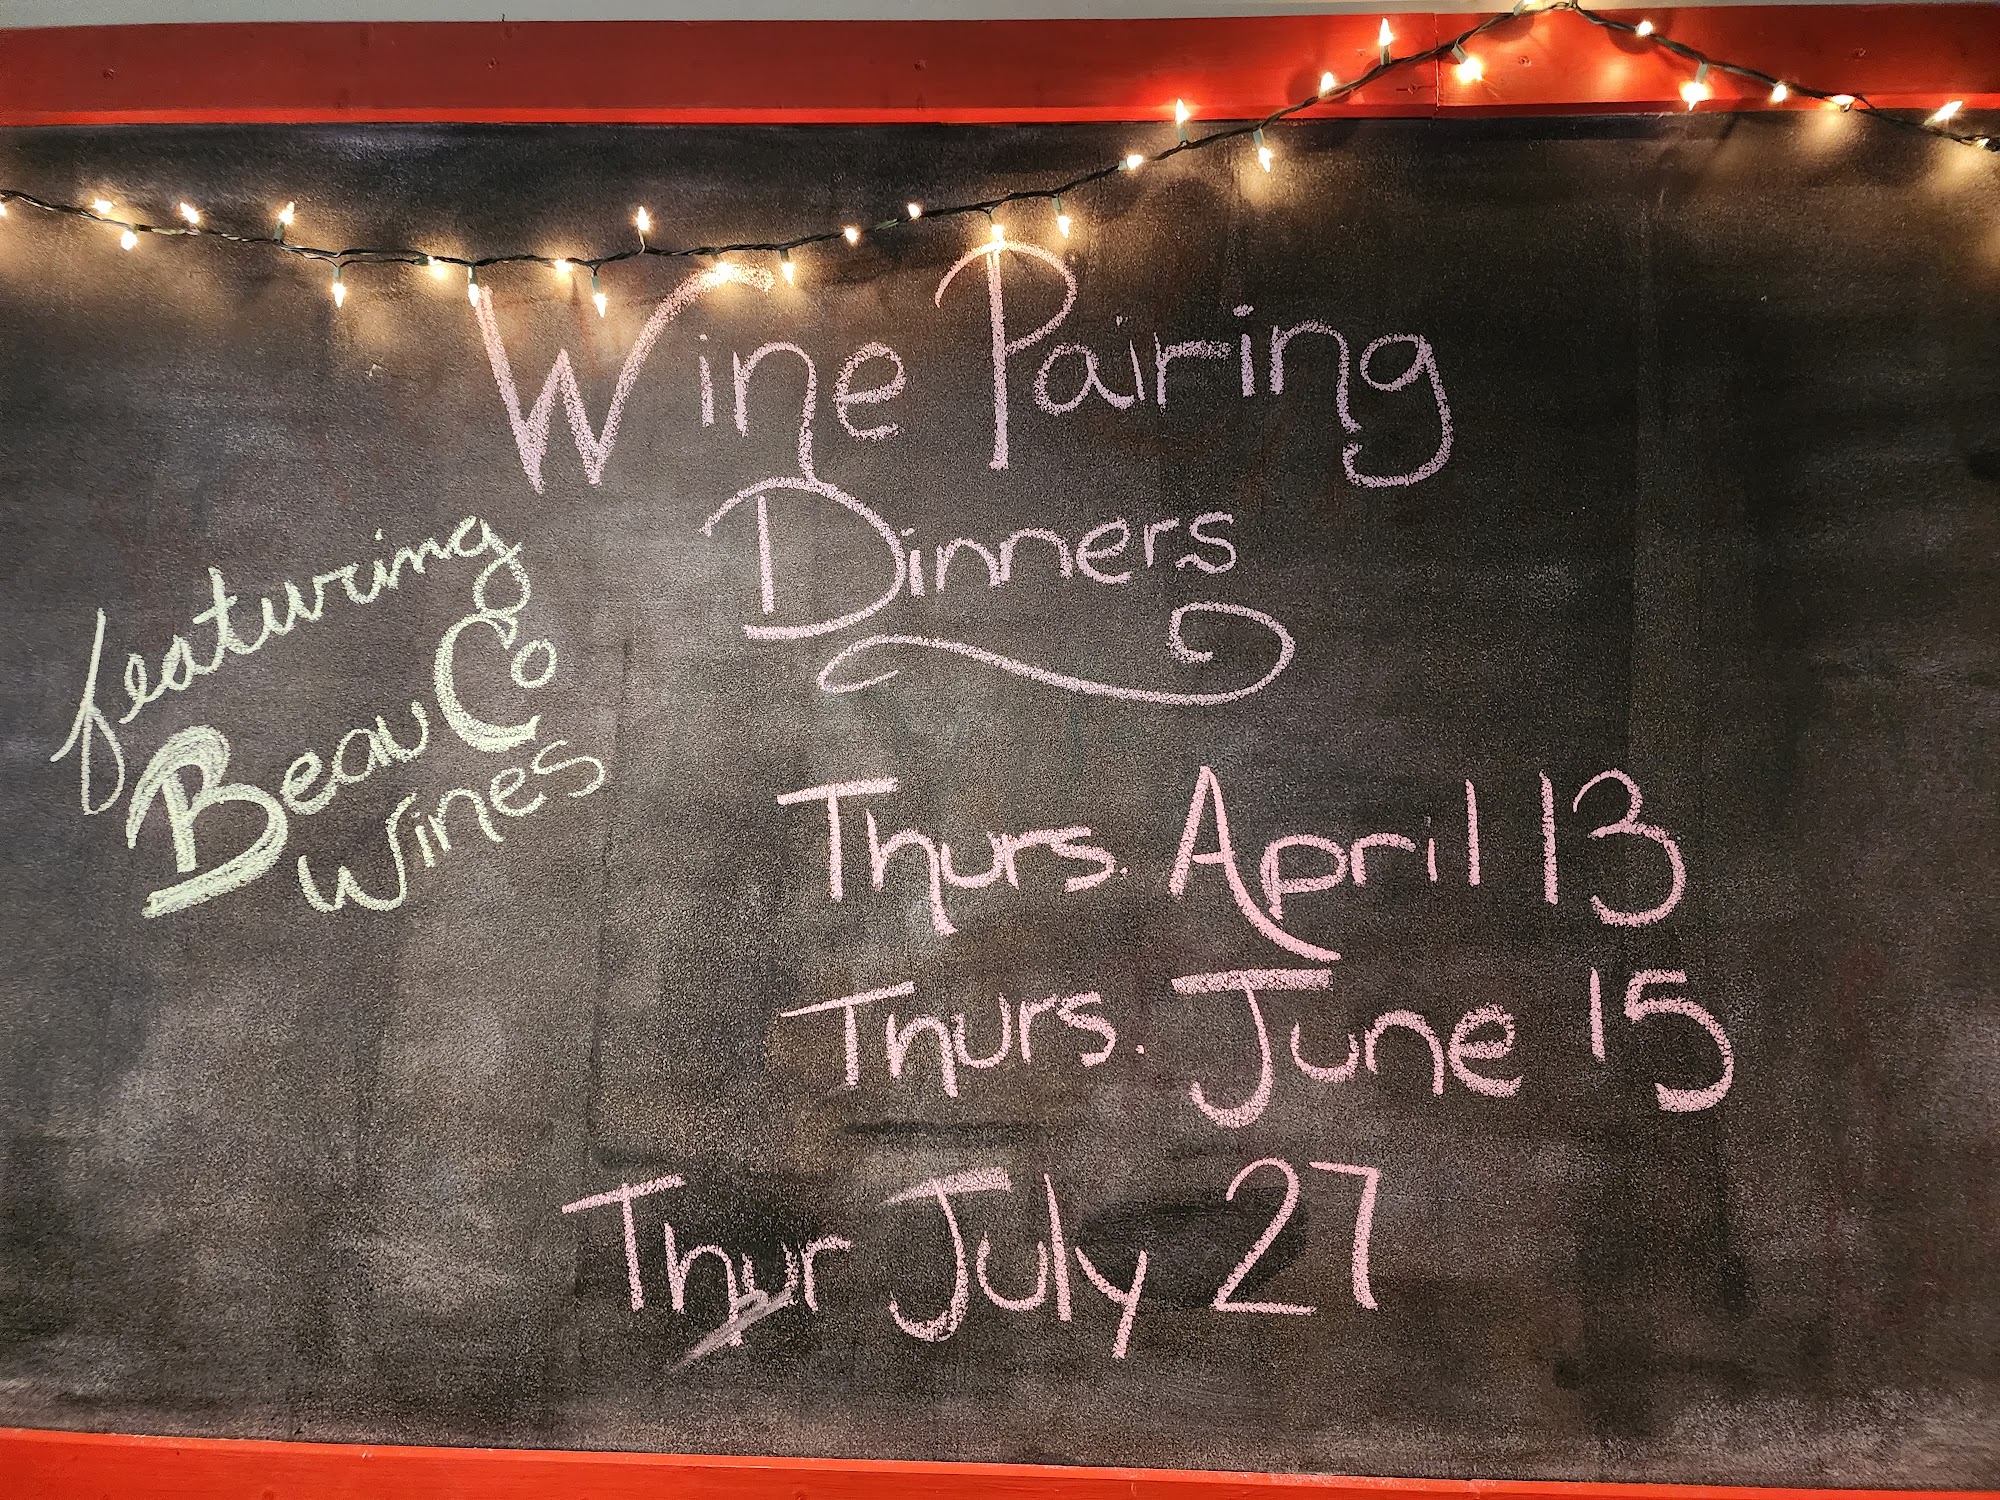 Wine Pairing
Dinners
featuring
BeauCo
wines
Thurs. April 13
Thurs. June 15
Thur July 27